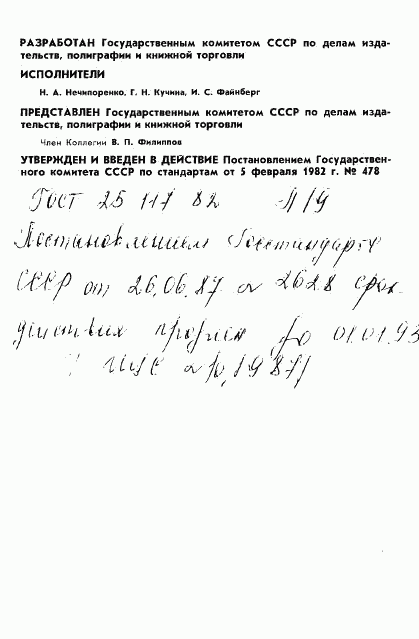 РАЗРАБОТАН Государственным комитетом СССР по делам изда-
тельств, полиграфии и книжной торговли
ИСПОЛНИТЕЛИ
Н. А. Нечипоренко, Г. Н. Кучина, И. С. Файнберг
ПРЕДСТАВЛЕН Государственным комитетом СССР по делам изда-
тельств, полиграфии и книжной торговли
Член Коллегии В. П. Филиппов
УТВЕРЖДЕН И ВВЕДЕН В ДЕЙСТВИЕ Постановлением Государствен-
ного комитета СССР по стандартам от 5 февраля 1982 г. № 478
ГОСТ 25 117 82
Постановлением Госстандарта
СССР от 26.06.87 № 2628 срок
действия продлен до 01.01.93
ИУС № 10, 1987